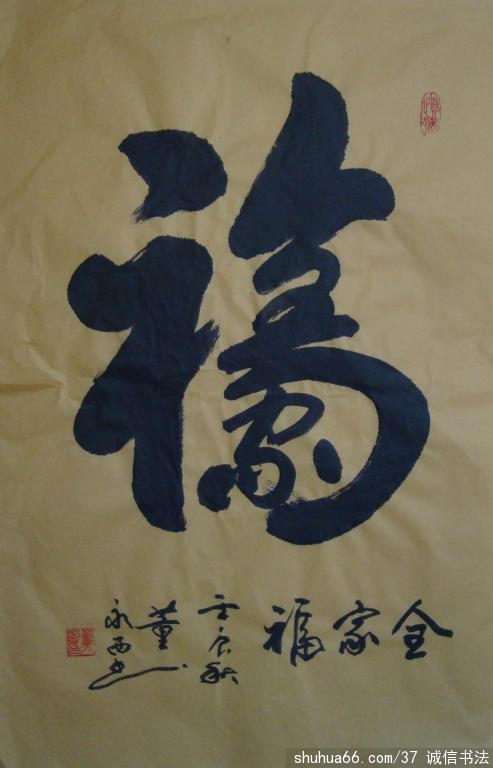 福
全家福
壬辰秋
董
永西书
shuhua66.com/37 诚信书法